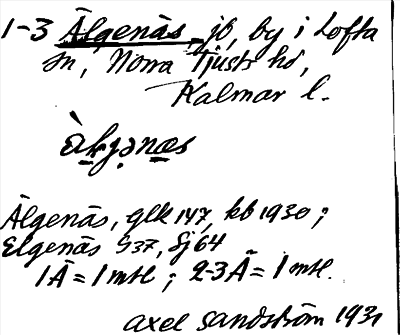 1-3 Älgenäs, jb, by i Lofta
sn, Norra Tjusts hd,
Kalmar l.
Älgenäs, glk 147, kb 1930;
Elgenäs G37, Sj64
1Ä = 1 mtl; 2-3Ä = 1 mtl.
Axel Sandström 1931